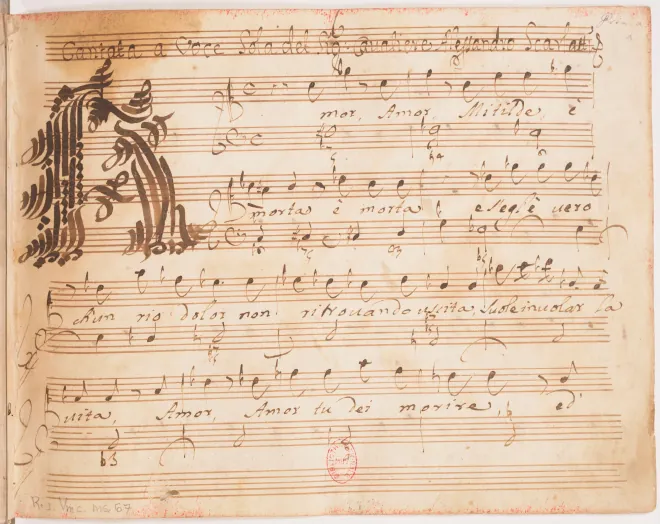 Cantata a Voce Sola del Sigr. Cavaliere Alessandro Scarlatti
A
mor, Amor, Mitilde è
morta è morta e se gl'è vero
ch'un rio dolor non ritrovando uscita, suole involar la
vita, Amor, Amor tu dei morire, ed'
Rés. Vmc. MS 67